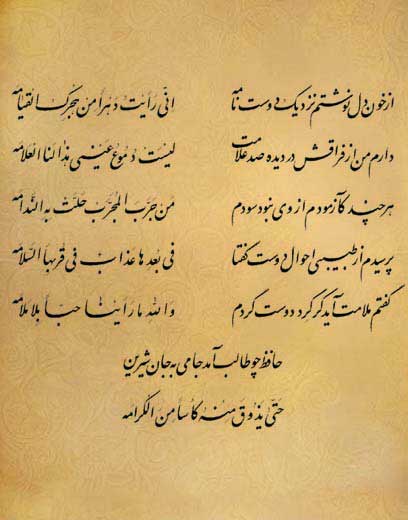 از خون دل نوشتم نزدیک دوست نامه انی رایت دهرا من هجرک القیامه
دارم من از فراقش در دیده صد علامت لیست دموع عینی هذا لنا العلامه
هر چند کآزمودم از وی نبود سودم من جرب المجرب حلت به الندامه
پرسیدم از طبیبی احوال دوست گفتا فی بعدها عذاب فی قربها السلامه
گفتم ملامت آید گر گرد دوست گردم والله ما راینا حبا بلا ملامه
حافظ چو طالب آمد جامی به جان شیرین
حتی یذوق منه کاسا من الکرامه